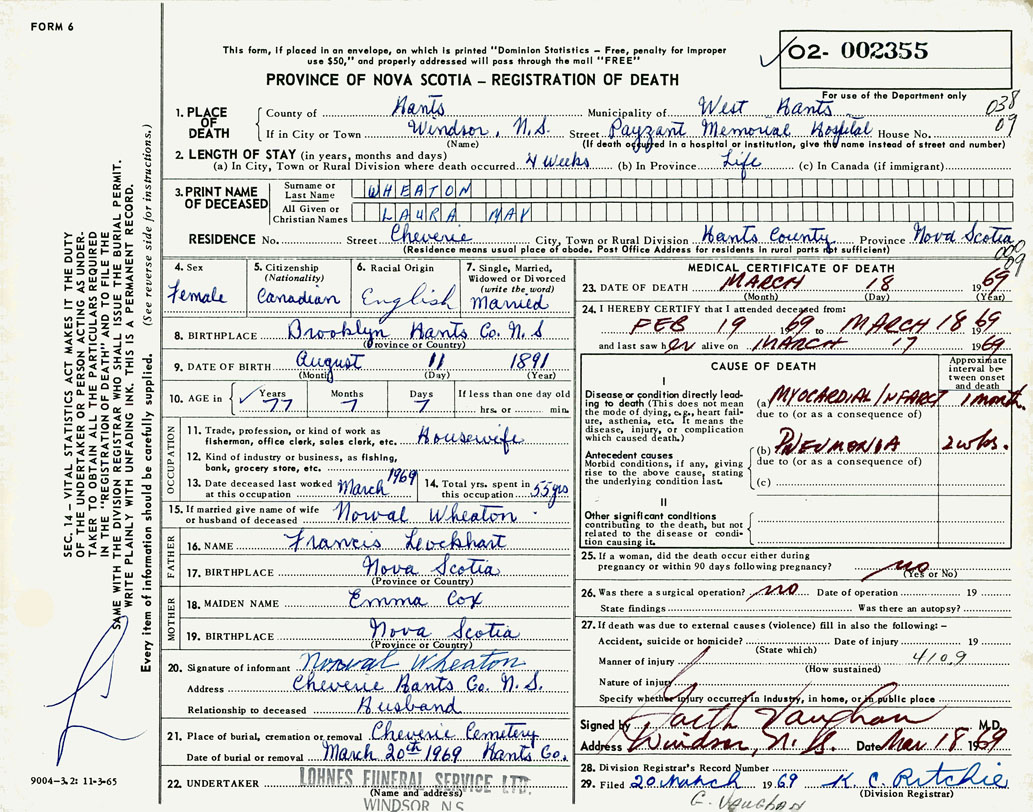 FORM 6
This form, if placed in an envelope, on which is printed "Dominion Statistics – Free, penalty for improper
use $50," and properly addressed will pass through the mail "FREE"
02- 002355
PROVINCE OF NOVA SCOTIA – REGISTRATION OF DEATH
For use of the Department only
038
09
1. PLACE OF DEATH
County of Hants Municipality of West Hants
If in City or Town Windsor, N.S. Street Payzant Memorial Hospital House No.
(Name) (If death occurred in a hospital or institution, give the name instead of street and number)
2. LENGTH OF STAY (in years, months and days)
(a) In City, Town or Rural Division where death occurred 4 Weeks (b) In Province Life (c) In Canada (if immigrant)
3. PRINT NAME OF DECEASED
Surname or Last Name WHEATON
All Given or Christian Names LAURA MAY
RESIDENCE No. Street Cheverie City, Town or Rural Division Hants County Province Nova Scotia
(Residence means usual place of abode. Post Office Address for residents in rural parts not sufficient)
000
09
4. Sex
Female
5. Citizenship
(Nationality)
Canadian
6. Racial Origin
English
7. Single, Married,
Widowed or Divorced
(write the word)
Married
8. BIRTHPLACE Brooklyn Hants Co. N.S
(Province or Country)
9. DATE OF BIRTH August 11 1891
(Month) (Day) (Year)
10. AGE in Years 77 Months 7 Days 7 If less than one day old
hrs. or min.
OCCUPATION
11. Trade, profession, or kind of work as
fisherman, office clerk, sales clerk, etc. Housewife
12. Kind of industry or business, as fishing,
bank, grocery store, etc.
13. Date deceased last worked
at this occupation March 1969
14. Total yrs. spent in
this occupation 55 yrs
15. If married give name of wife
or husband of deceased Norval Wheaton
FATHER
16. NAME Francis Lockhart
17. BIRTHPLACE Nova Scotia
(Province or Country)
MOTHER
18. MAIDEN NAME Emma Cox
19. BIRTHPLACE Nova Scotia
(Province or Country)
20. Signature of informant Norval Wheaton
Address Cheverie Hants Co. N.S.
Relationship to deceased Husband
21. Place of burial, cremation or removal Cheverie Cemetery
Date of burial or removal March 20th 1969 Hants Co.
22. UNDERTAKER LOHNES FUNERAL SERVICE LTD.
(Name and address)
WINDSOR N.S.
MEDICAL CERTIFICATE OF DEATH
23. DATE OF DEATH MARCH 18 1969
(Month) (Day) (Year)
24. I HEREBY CERTIFY that I attended deceased from:
FEB 19 1969 to MARCH 18 69
and last saw her alive on MARCH 17 1969
CAUSE OF DEATH
Approximate
interval be-
tween onset
and death
I
Disease or condition directly lead-
ing to death (This does not mean
the mode of dying, e.g., heart fail-
ure, asthenia, etc. It means the
disease, injury, or complication
which caused death.)
(a) MYOCARDIAL INFARCT 1 month
due to (or as a consequence of)
(b) PNEUMONIA 2 wks.
due to (or as a consequence of)
(c)
Antecedent causes
Morbid conditions, if any, giving
rise to the above cause, stating
the underlying condition last.
II
Other significant conditions
contributing to the death, but not
related to the disease or condi-
tion causing it.
25. If a woman, did the death occur either during
pregnancy or within 90 days following pregnancy? no
(Yes or No)
26. Was there a surgical operation? no Date of operation 19
State findings Was there an autopsy?
27. If death was due to external causes (violence) fill in also the following: –
Accident, suicide or homicide? Date of injury 19
(State which)
Manner of injury 4109
(How sustained)
Nature of injury
Specify whether injury occurred in industry, in home, or in public place
Signed by Garth Vaughan M.D.
Address Windsor, N.S. Date Mar 18 1969
28. Division Registrar's Record Number
29. Filed 20 March 1969 K C Ritchie
(Division Registrar)
G. Vaughan
SEC. 14 – VITAL STATISTICS ACT MAKES IT THE DUTY
OF THE UNDERTAKER OR PERSON ACTING AS UNDER-
TAKER TO OBTAIN ALL THE PARTICULARS REQUIRED
IN THE "REGISTRATION OF DEATH" AND TO FILE THE
SAME WITH THE DIVISION REGISTRAR WHO SHALL ISSUE THE BURIAL PERMIT.
WRITE PLAINLY WITH UNFADING INK. THIS IS A PERMANENT RECORD.
Every item of information should be carefully supplied. (See reverse side for instructions.)
9004–3.2: 11-3-65